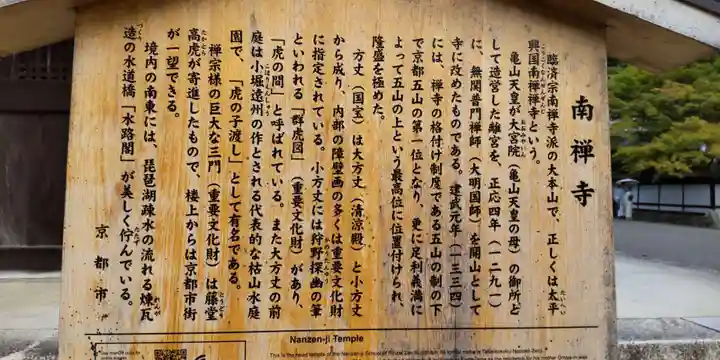 南禅寺
臨済宗南禅寺派の大本山で、正しくは太平
興国南禅禅寺という。
亀山天皇が大宮院（亀山天皇の母）の御所と
して造営した離宮を、正応四年（一二九一）
に、無関普門禅師（大明国師）を開山として
寺に改めたものである。建武元年（一三三四）
には、禅寺の格付け制度である五山の制の下
で京都五山の第一位となり、更に足利義満に
よって五山の上という最高位に位置付けられ、
隆盛を極めた。
方丈（国宝）は大方丈（清涼殿）と小方丈
から成り、内部の障壁画の多くは重要文化財
に指定されている。小方丈には狩野探幽の筆
といわれる「群虎図」（重要文化財）があり、
「虎の間」と呼ばれている。また大方丈の前
庭は小堀遠州の作とされる代表的な枯山水庭
園で、「虎の子渡し」として有名である。
禅宗様の巨大な三門（重要文化財）は藤堂
高虎が寄進したもので、楼上からは京都市街
が一望できる。
境内の南東には、琵琶湖疏水の流れる煉瓦
造の水道橋「水路閣」が美しく佇んでいる。
京都市
Nanzen-ji Temple
This is the head temple of the Nanzen-ji School of Rinzai Zen Buddhism